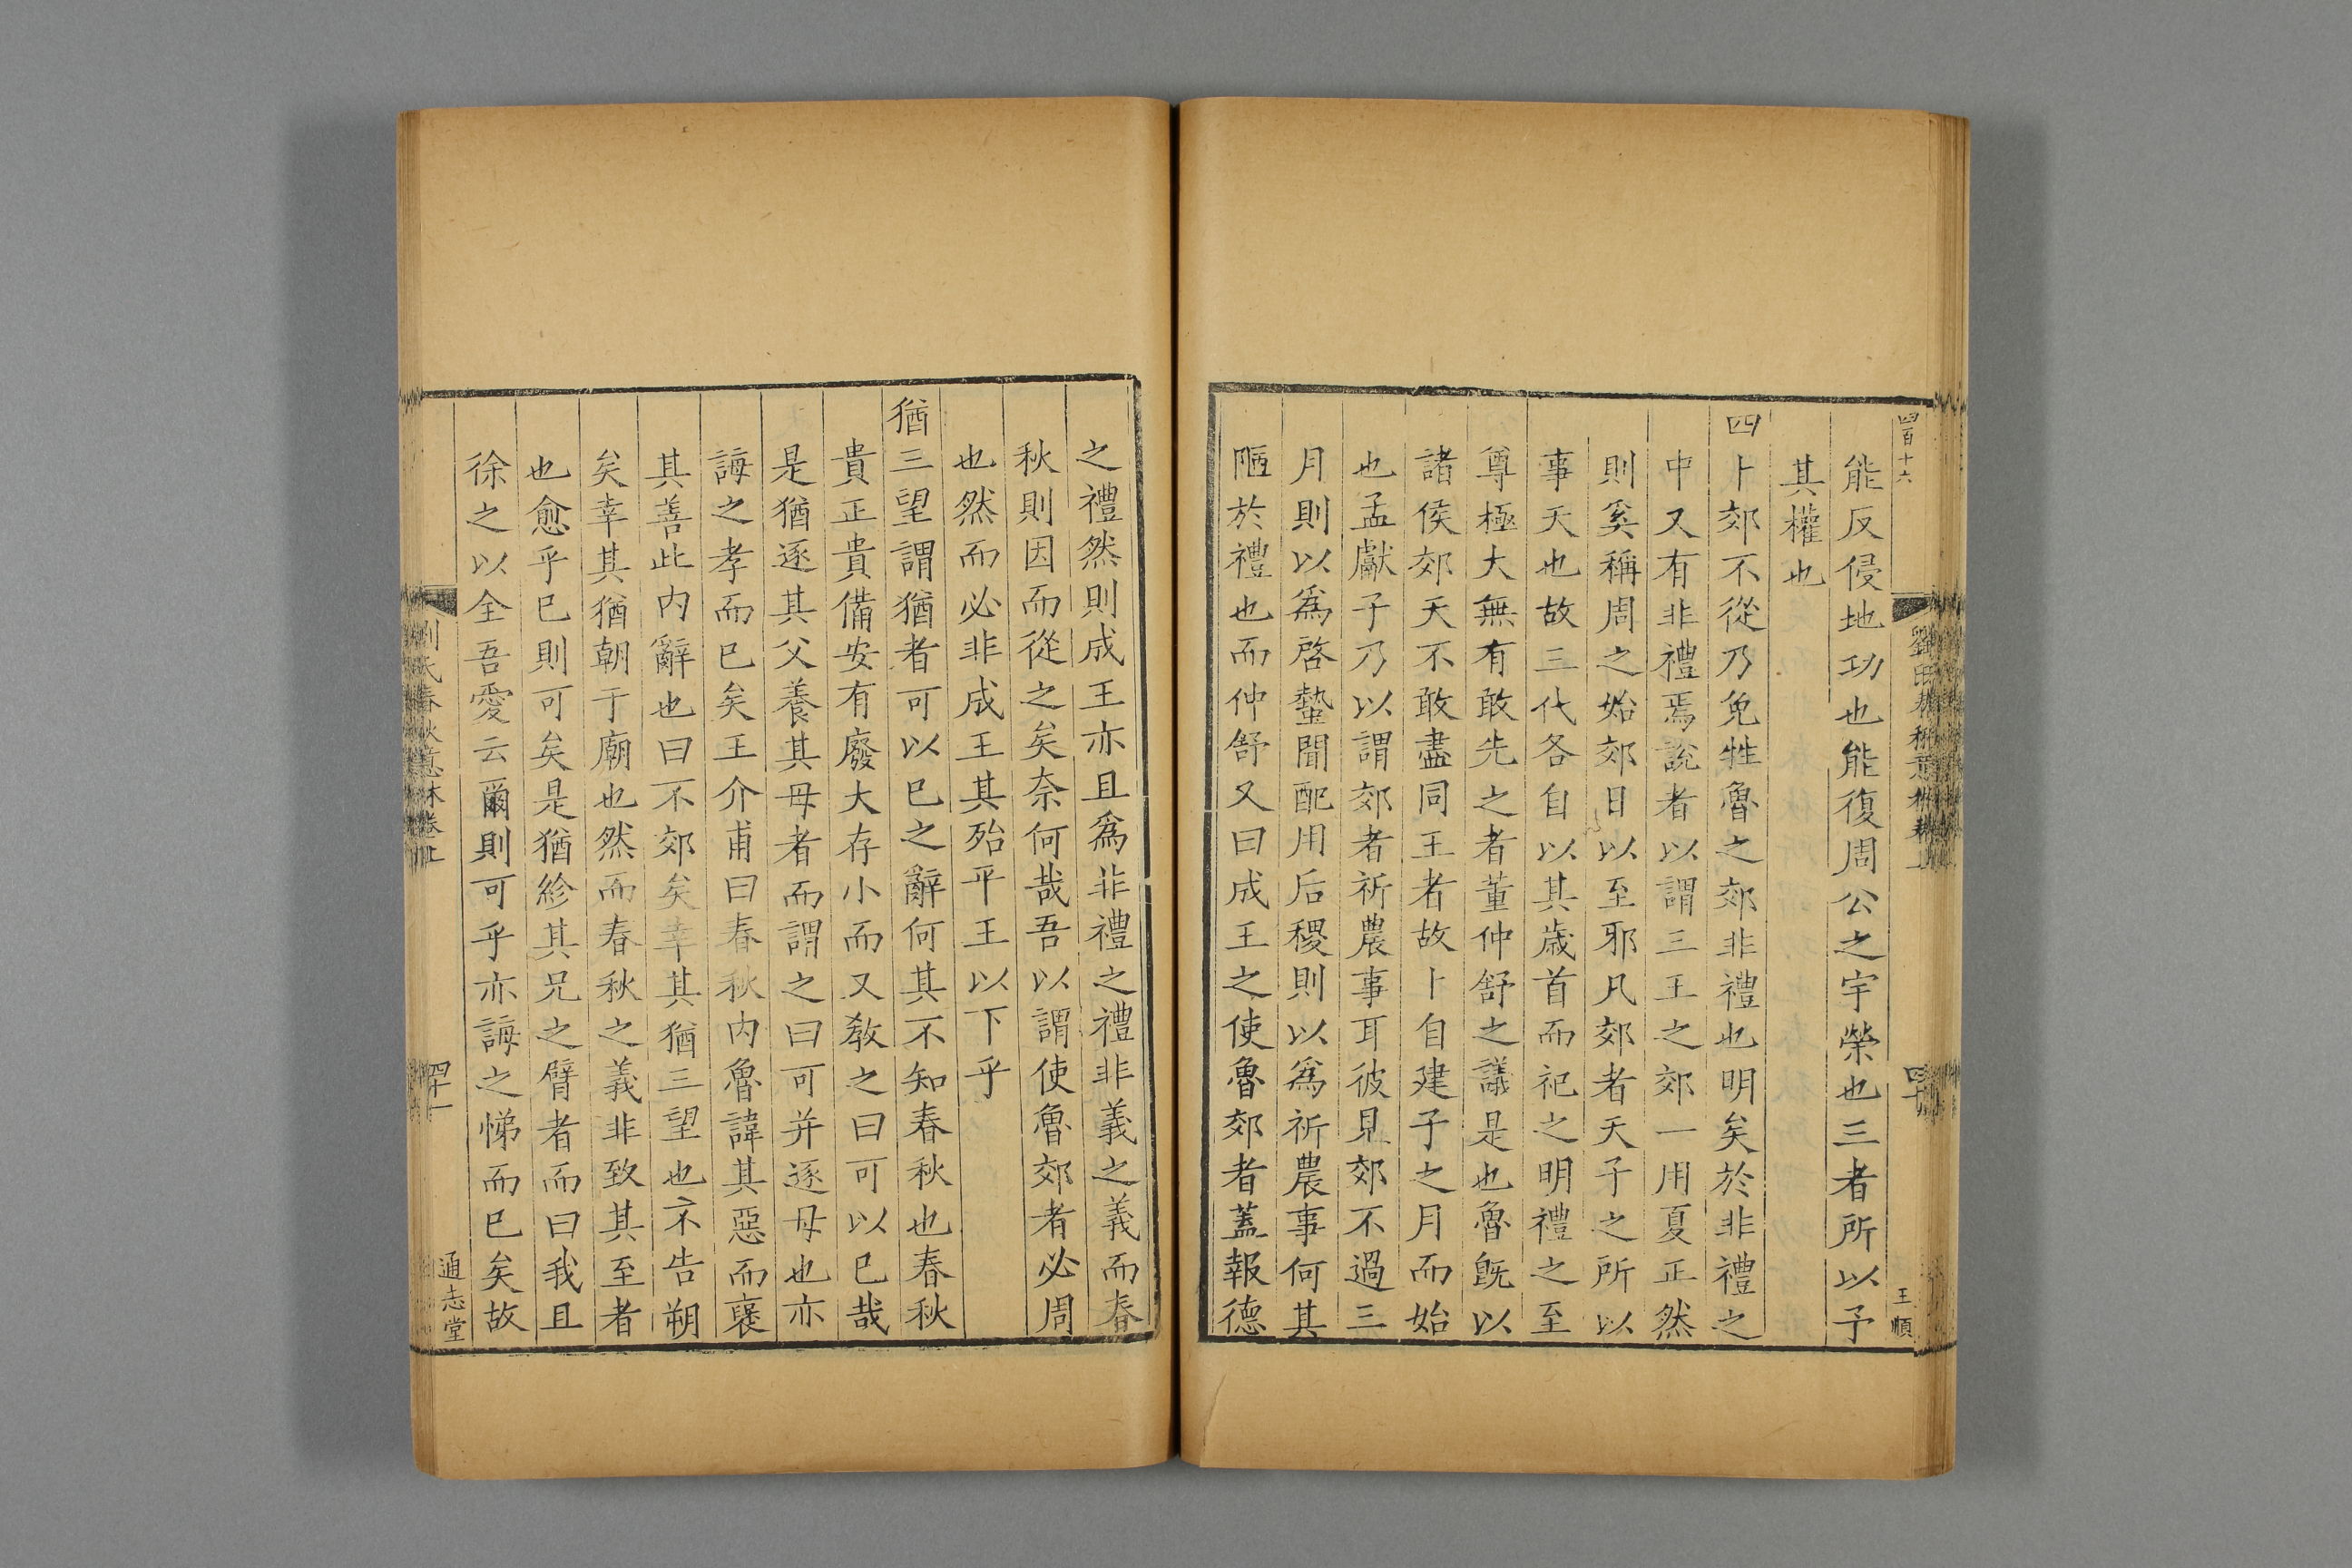 四百十六
王順
能反侵地功也能復周公之宇榮也三者所以予
其權也
四卜郊不從乃免牲魯之郊非禮也明矣於非禮之
中又有非禮焉説者以謂三王之郊一用夏正然
則奚稱周之始郊日以至邪凡郊者天子之所以
事天也故三代各自以其歲首而祀之明禮之至
尊極大無有敢先之者董仲舒之議是也魯既以
諸侯郊天不敢盡同王者故卜自建子之月而始
也孟獻子乃以謂郊者祈農事耳彼見郊不過三
月則以爲啓蟄聞配用后稷則以爲祈農事何其
陋於禮也而仲舒又曰成王之使魯郊者蓋報德
之禮然則成王亦且爲非禮之禮非義之義而春
秋則因而從之矣奈何哉吾以謂使魯郊者必周
也然而必非成王其殆平王以下乎
猶三望謂猶者可以已之辭何其不知春秋也春秋
貴正貴備安有廢大存小而又教之曰可以已哉
是猶逐其父養其母者而謂之曰可并逐母也亦
誨之孝而已矣王介甫曰春秋内魯諱其惡而襃
其善此内辭也曰不郊矣幸其猶三望也不告朔
矣幸其猶朝于廟也然而春秋之義非致其至者
也愈乎已則可矣是猶紾其兄之臂者而曰我且
徐之以全吾愛云爾則可乎亦誨之悌而已矣故
劉氏春秋意林卷上
四十一
通志堂